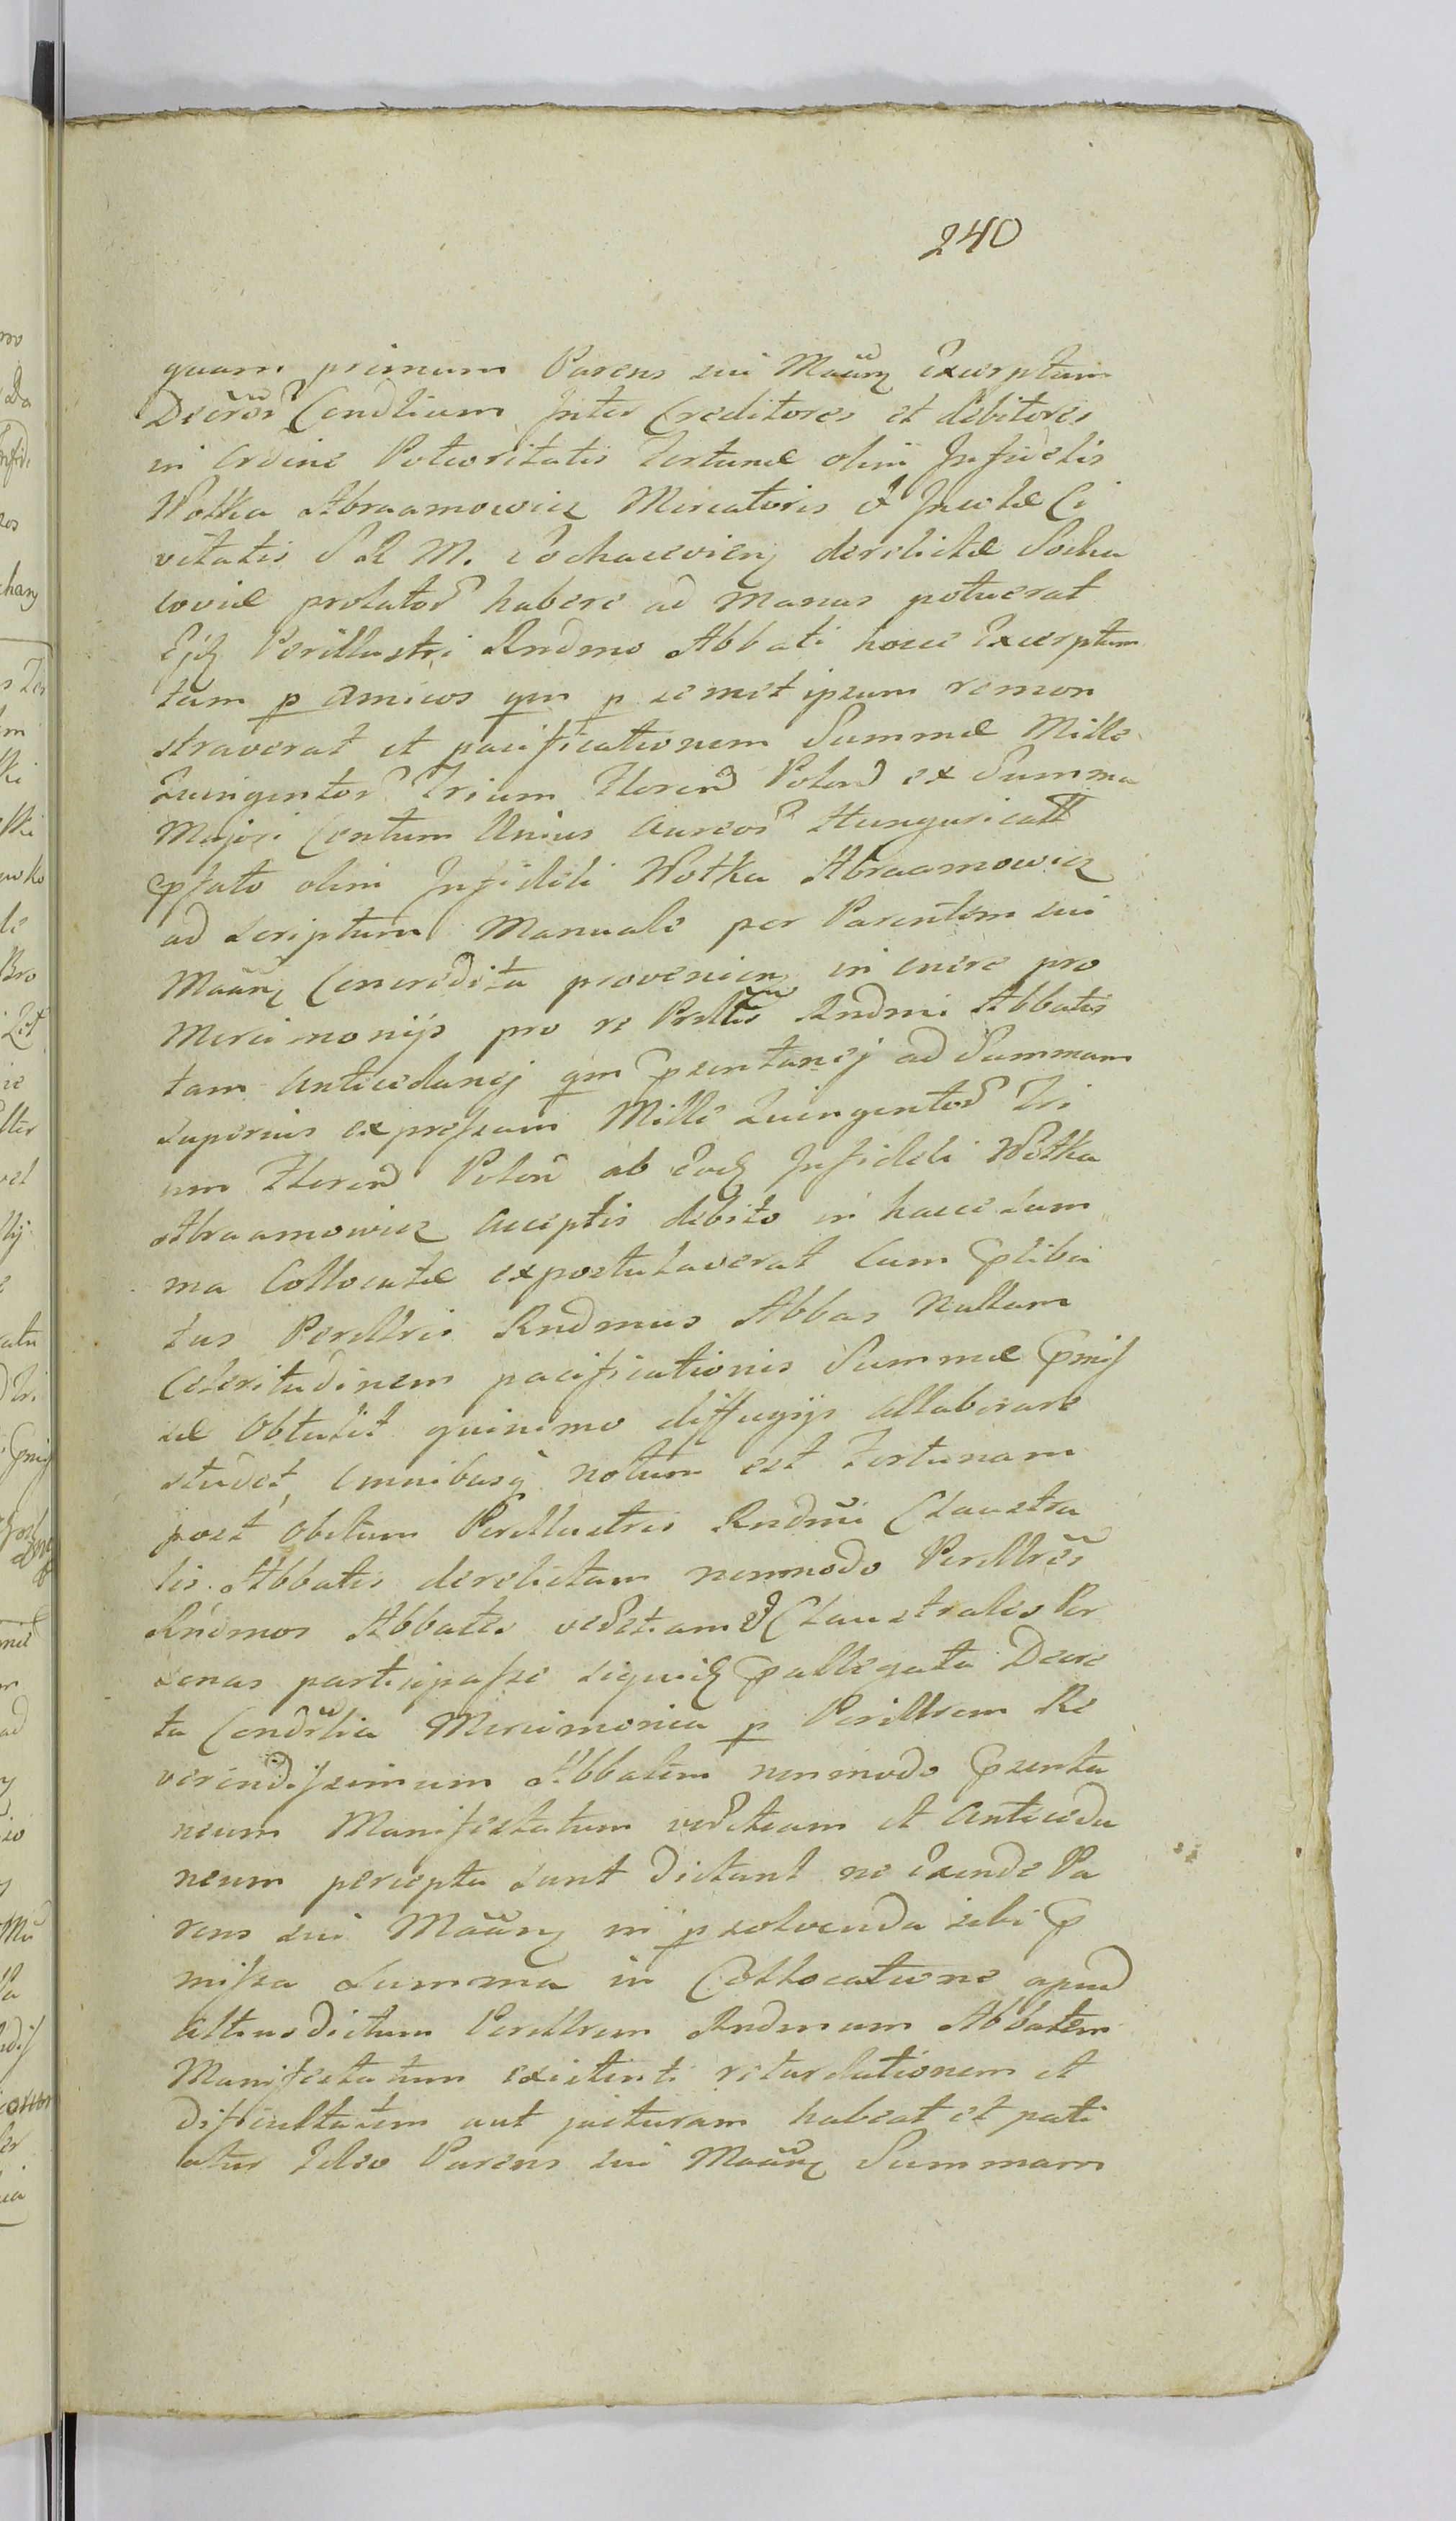 240
quam primum Parens sui Maăn Excerptum
Decror Condlium Inter Creditores et debitores
in Ordine Potioritatis Fortunæ olim Infidelis
Wołka Abraamowicz Mercatoris et Incolæ Ci
vitatis S R M. Sochacevien derelictæ Socha
coviæ prolator habere ad manus potuerat
Perillustri Rndmo Abbati hocce Excerptum
tam p amicos qm p semet ipsum remon
straverat et pacificationem Summæ Mille
Quingentor Trium Floren Polon ex Summa
Majori Centum Unius Aureor Hungarical
pfato olim Infideli Wołka Abraamowicz
ad scriptum Manuale per Parentem sui
Maăn Concredita provenien in onere pro
Mercimonijs pro re Prlltris Rndmi Abbatis
tam Antecedanej qm psentanej ad Summam
superius expressam Mille Quingentor Tri
um Floren Polon ab Infideli Wołka
Abraamowicz acceptis debito in hacce Sum
ma Collocatæ expostulaverat Cum pliba
tus Perlltris Rndmus Abbas Nullam
Celeritudinem pacificationis Summæ pmis
sæ Obtulit quinimo diffugijs allaborare
studet, omnibusq notum est Fortunam
post Obitum Perillustris Rndmi Claustra
lis Abbatis derelictam nonmodo Perlltres
Rndmos Abbates veretiam et Claustrales Per
sonas participasse siquid pallegata Decre
ta Condrlia Mercimonia p Perilltrem Re
verendissimum Abbatem nonmodo psenta
neum Manifestatum veretiam et Anteceda
neum percepta sunt dictant ne Exinde Pa
rens sui Maăn in psolvenda sibi p
missa Summa in Collocatione apud
altius dictum Perlltrem Rndmum Abbatem
Manifestatum existenti retardationem et
difficultatem aut jacturam habeat et pati
atur Ideo Parens sui Maăn Summam